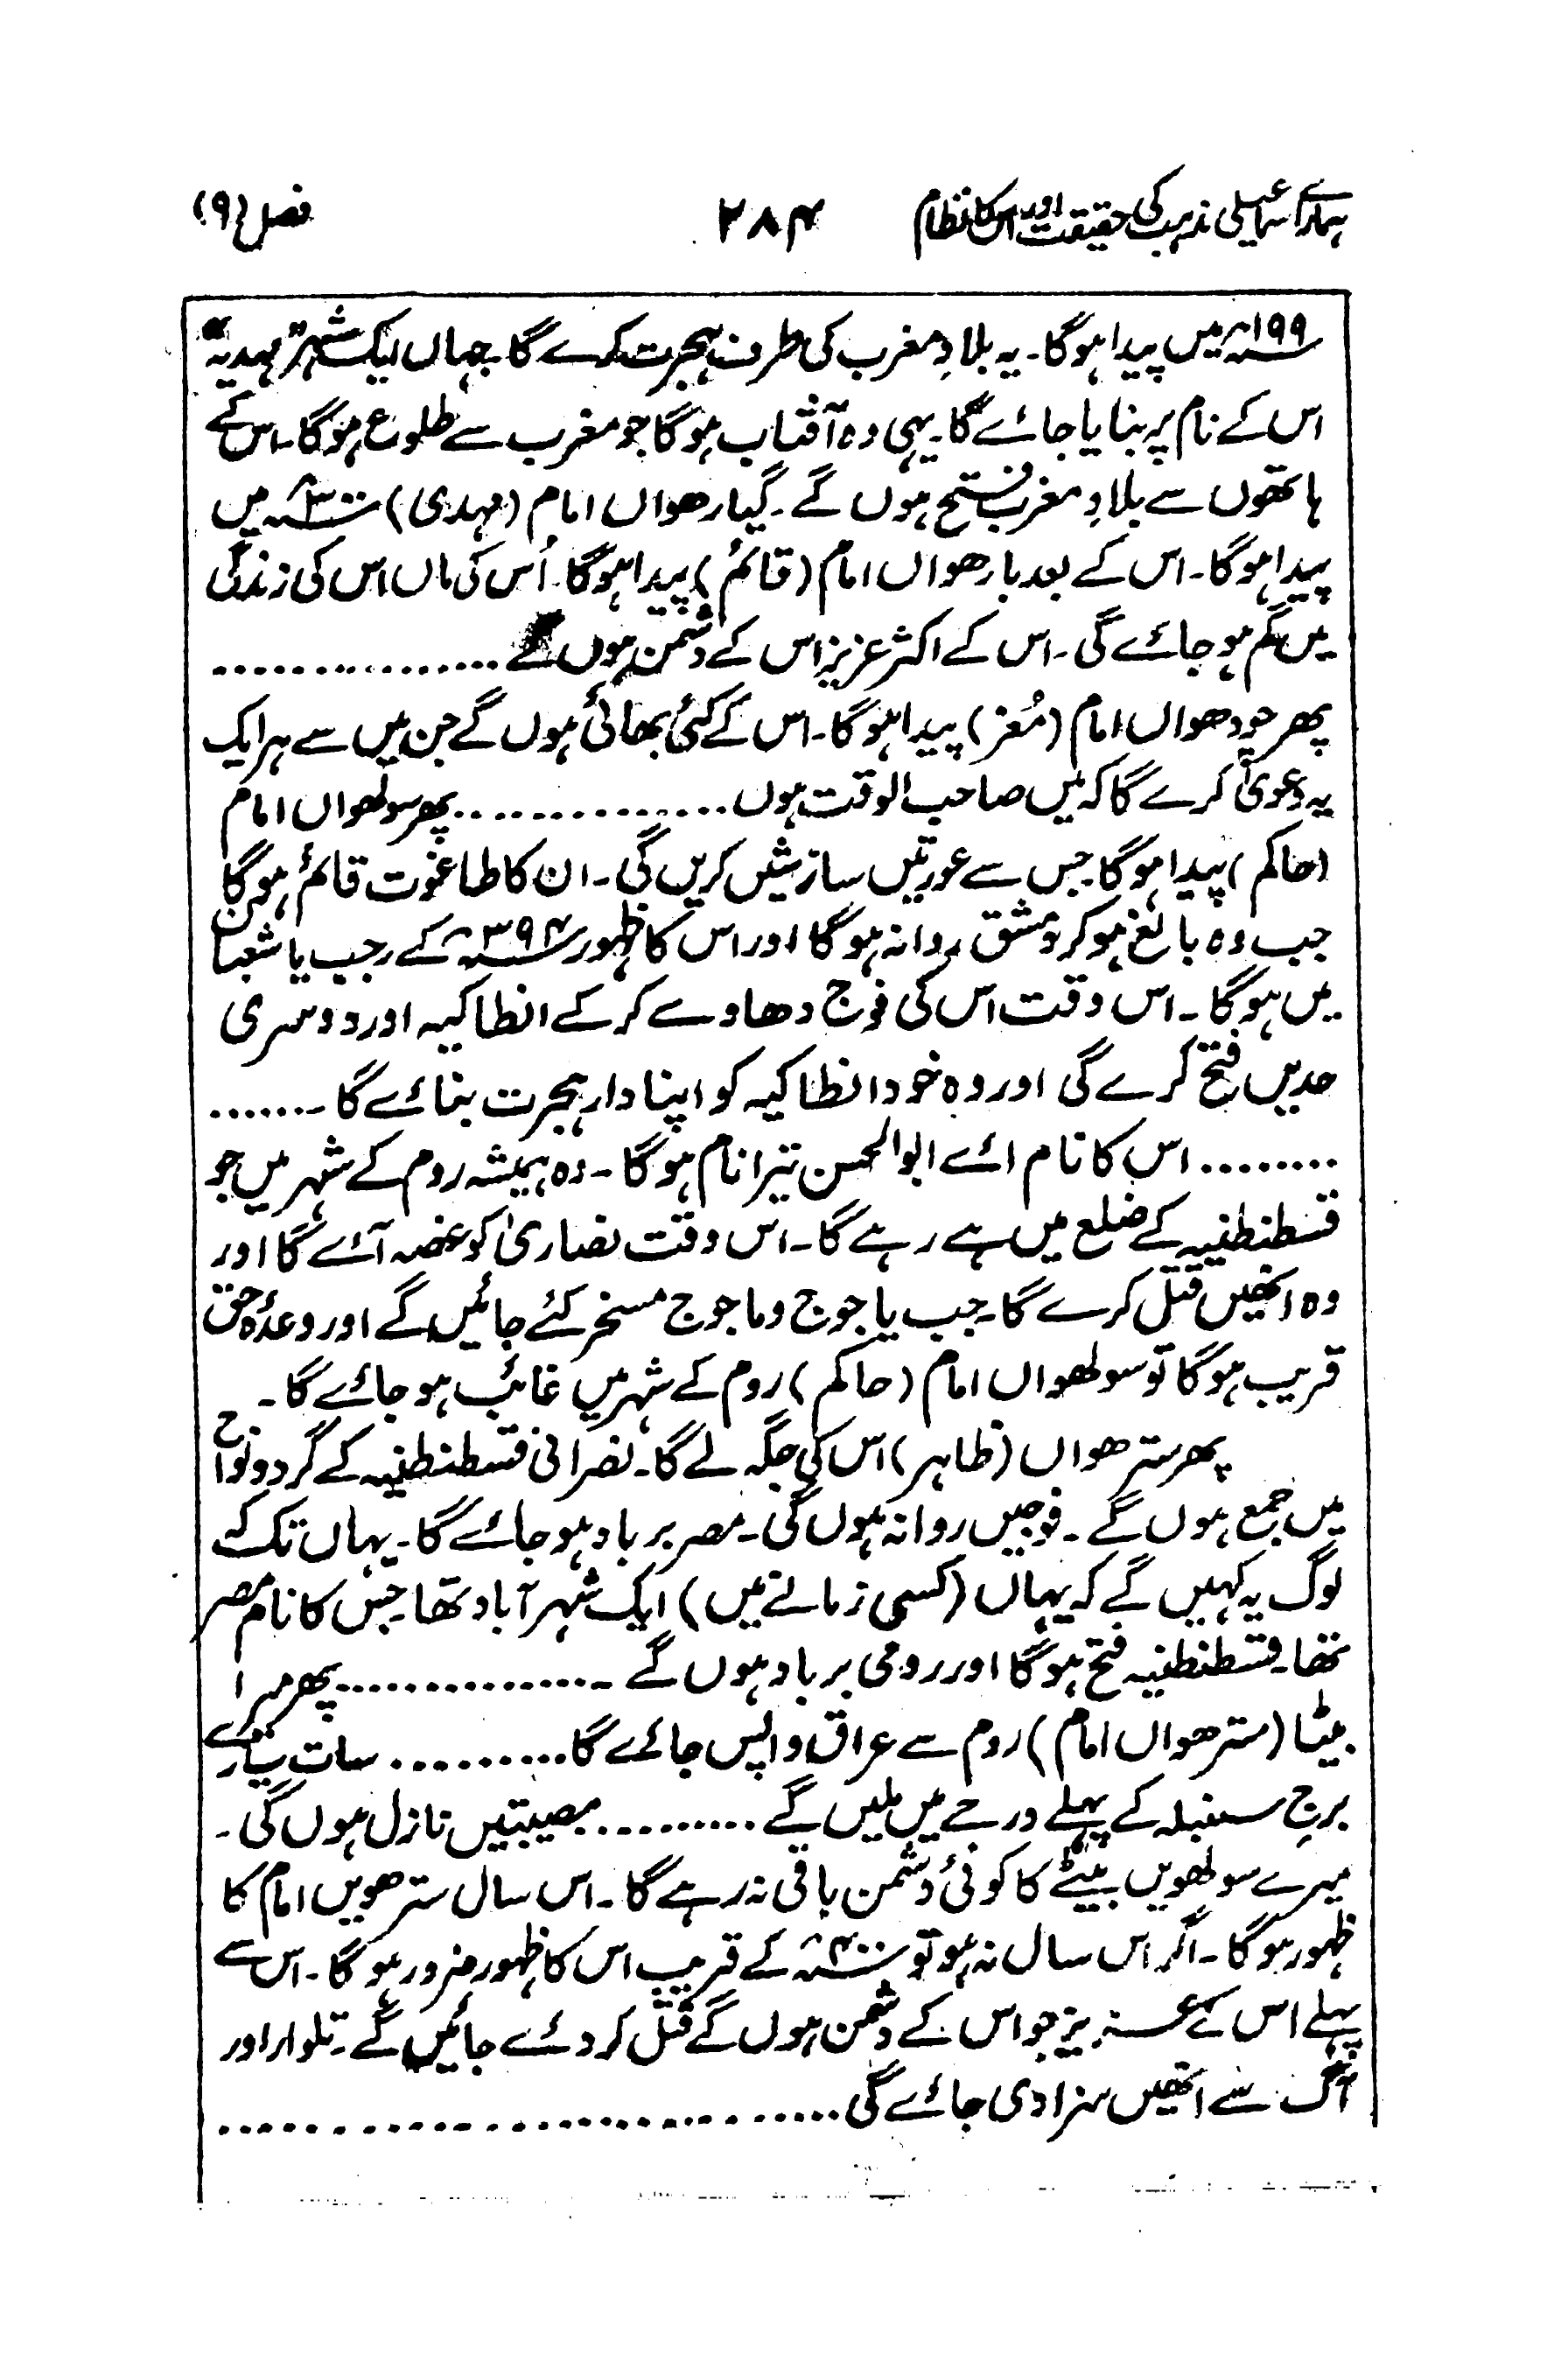 ہمارے اسماعیلی مذہب کی حقیقت اور اس کا نظام ۲۸۴ فصل (۹)
۱۹۹ھ میں پیدا ہوگا۔ یہ بلادِ مغرب کی طرف ہجرت کرے گا۔ جہاں ایک شہر "مہدیہ"
اس کے نام پر بنایا جائے گا۔ یہی وہ آفتاب ہوگا جو مغرب سے طلوع ہوگا۔ اس کے
ہاتھوں سے بلادِ مغرب فتح ہوں گے۔ گیارھواں امام (مہدی) ۳۰۰ھ میں
پیدا ہوگا۔ اس کے بعد بارھواں امام (قائم) پیدا ہوگا۔ اُس کی ماں اس کی زندگی
میں گم ہو جائے گی۔ اس کے اکثر عزیز اس کے دشمن ہوں گے ................
پھر چودھواں امام (مُعز) پیدا ہوگا۔ اس کے کئی بھائی ہوں گے جن میں سے ہر ایک
یہ دعویٰ کرے گا کہ میں صاحب الوقت ہوں ................ پھر سولھواں امام
(حاکم) پیدا ہوگا جس سے عورتیں سازشیں کریں گی۔ ان کا طاغوت قائم ہوگا
جب وہ بالغ ہو کر دمشق روانہ ہوگا اور اس کا ظہور ۳۹۴ھ کے رجب یا شعبان
میں ہوگا۔ اس وقت اس کی فوج دھاوے کر کے انطاکیہ اور دوسری
حدیں فتح کرے گی اور وہ خود انطاکیہ کو اپنا دار ہجرت بنائے گا۔.......
......... اس کا نام اے ابوالحسن تیرا نام ہوگا۔ وہ ہمیشہ روم کے شہر میں جو
قسطنطنیہ کے ضلع میں ہے رہے گا۔ اس وقت نصاریٰ کو غصہ آئے گا اور
وہ انھیں قتل کرے گا۔ جب یاجوج و ماجوج مسخر کئے جائیں گے اور وعدۂ حق
قریب ہوگا تو سولھواں امام (حاکم) روم کے شہر میں غائب ہو جائے گا۔
پھر سترھواں (ظاہر) اس کی جگہ لے گا۔ نصرانی قسطنطنیہ کے گرد و نواح
میں جمع ہوں گے۔ فوجیں روانہ ہوں گی۔ مصر برباد ہو جائے گا۔ یہاں تک کہ
لوگ یہ کہیں گے کہ یہاں (کسی زمانے میں) ایک شہر آباد تھا۔ جس کا نام مصر
تھا۔ قسطنطنیہ فتح ہوگا اور رومی برباد ہوں گے ۔................ پھر میرا
بیٹا (سترھواں امام) روم سے عراق واپس جائے گا.......... سات سیّارے
برجِ سنبلہ کے پہلے درجے میں ملیں گے .......... مصیبتیں نازل ہوں گی۔
میرے سولھویں بیٹے کا کوئی دشمن باقی نہ رہے گا۔ اس سال سترھویں امام کا
ظہور ہوگا۔ اگر اس سال نہ ہو تو ۴۰۰ھ کے قریب اس کا ظہور ضرور ہوگا۔ اس سے
پہلے اس کے عزیز جو اس کے دشمن ہوں گے قتل کر دئے جائیں گے۔ تلوار اور
آگ سے انھیں سزا دی جائے گی ..............................